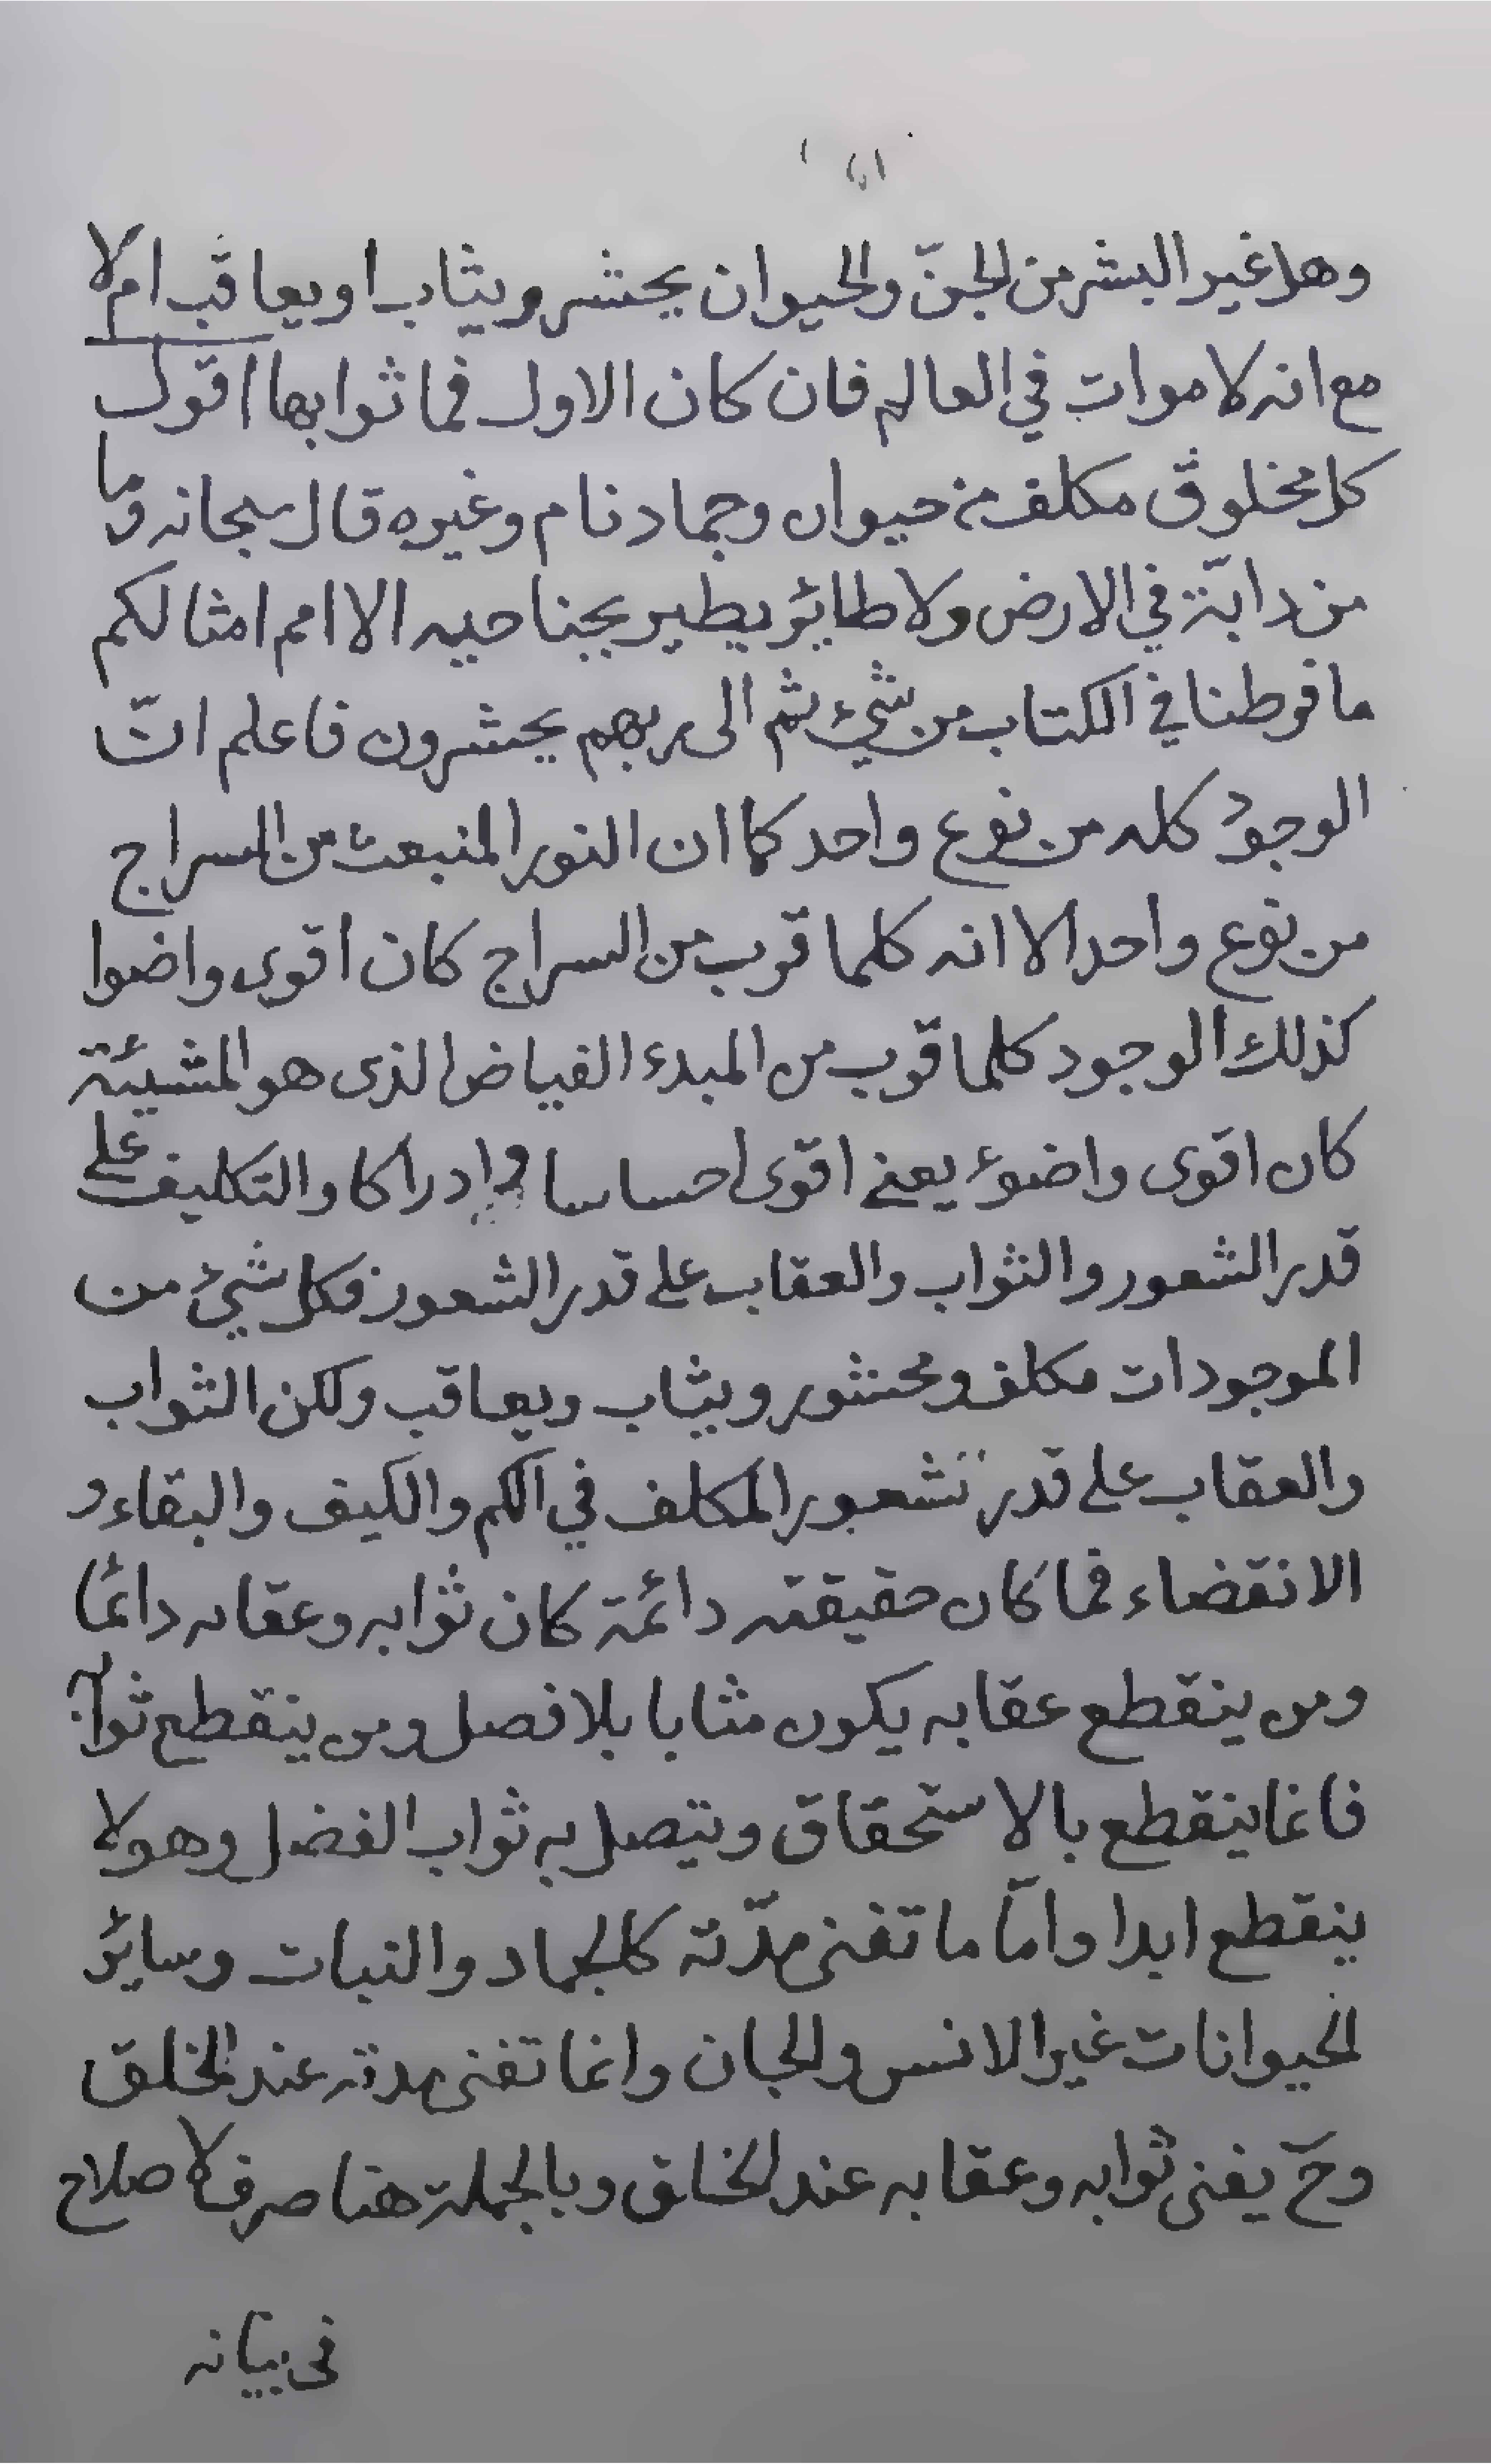 وهل غير البشر من الجنّ والحيوان يحشر ويثاب او يعاقب ام لا
مع انه لا موات في العالم فان كان الاول فما ثوابها اقول
كل مخلوق مكلف من حيوان وجماد نام وغيره قال سبحانه وما
من دابّة في الارض ولا طائر يطير بجناحيه الا امم امثالكم
ما فرطنا في الكتاب من شيء ثم الى ربهم يحشرون فاعلم انّ
الوجود كله من نوع واحد كما ان النور المنبعث من السراج
من نوع واحد الا انه كلما قرب من السراج كان اقوى واضوا
كذلك الوجود كلما قرب من المبدء الفياض الذى هو المشيئة
كان اقوى واضوء يعني اقوى احساسا وادراكا والتكليف على
قدر الشعور والثواب والعقاب على قدر الشعور فكل شيء من
الموجودات مكلف ومحشور ويثاب ويعاقب ولكن الثواب
والعقاب على قدر شعور المكلف في الكم والكيف والبقاء و
الانقضاء فما كان حقيقته دائمة كان ثوابه وعقابه دائمًا
ومن ينقطع عقابه يكون مثابا بلا فصل ومن ينقطع ثوابه
فانما ينقطع بالاستحقاق ويتصل به ثواب الفضل وهو لا
ينقطع ابدا وامّا ما تفنى مدّته كالجماد والنبات وسائر
الحيوانات غير الانس والجان وانما تفنى مدته عند الخلق
وحّ يفنى ثوابه وعقابه عند الخلق وبالجملة هنا صرف لاصلاح
فى بيانه